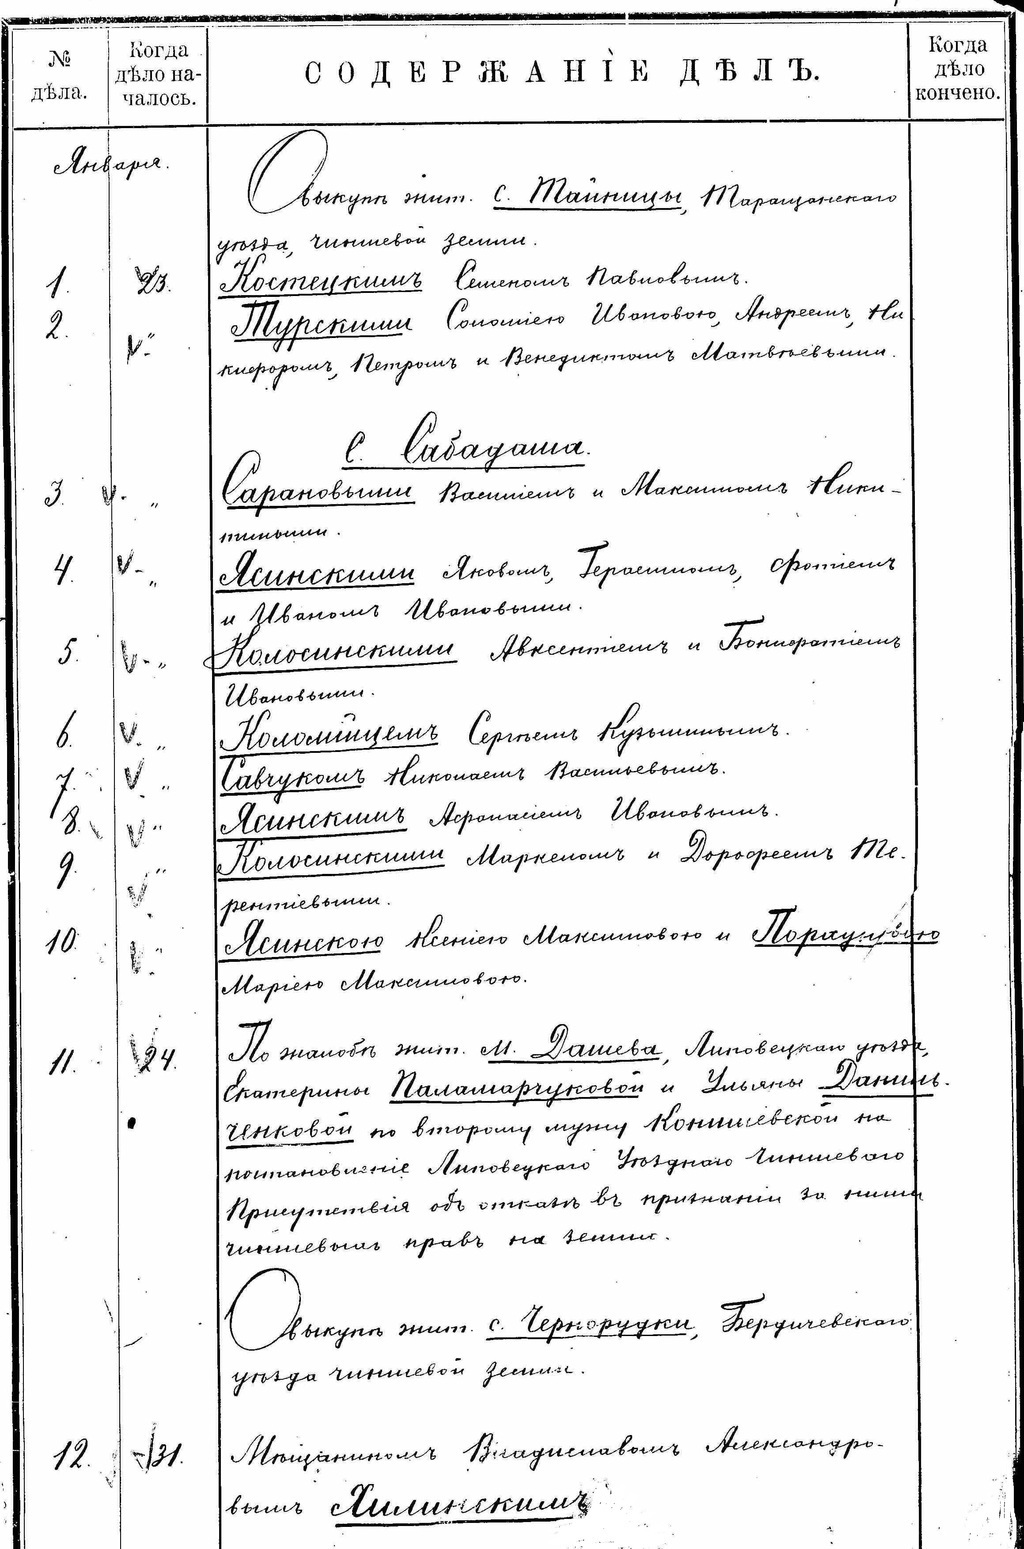 № дѣла.
Когда дѣло на-
чалось.
СОДЕРЖАНІЕ ДѢЛЪ.
Когда дѣло кончено.
Января.
О выкупѣ жит. с. Тайницы, Таращанскаго
уѣзда, чиншевой земли.
1. 23. Костецкимъ Семеномъ Павловымъ.
2. „ Турскими Соломіею Ивановою, Андреемъ, Ни
кифоромъ, Петромъ и Венедиктомъ Матвѣевыми.
С. Сабадаша.
3. „ Сарановыми Василіемъ и Максимомъ Ники-
тиными.
4. „ Ясинскими Яковомъ, Герасимомъ, Фотіемъ
и Иваномъ Ивановыми.
5. „ Колосинскими Авксентіемъ и Бонифатіемъ
Ивановыми.
6. „ Коломійцемъ Сергѣемъ Кузьминымъ.
7. „ Савчукомъ Николаемъ Васильевымъ.
8. „ Ясинскимъ Афанасіемъ Ивановымъ.
9. „ Колосинскими Маркеломъ и Дорофеемъ Те-
рентіевыми.
10. „ Ясинскою Ксеніею Максимовою и
Маріею Максимовою.
11. 24. По жалобѣ жит. м. Дашева, Липовецкаго уѣзда,
Екатерины Паламарчуковой и Ульяны Даниль-
ченковой по второму мужу Конишевской на
постановленіе Липовецкаго Уѣзднаго Чиншеваго
Присутствія объ отказѣ въ признаніи за ними
чиншевыхъ правъ на земли.
О выкупѣ жит. с. Чернорудки, Бердичевскаго
уѣзда чиншевой земли.
12. 31. Мѣщаниномъ Владиславомъ Александро-
вымъ Хилинскимъ